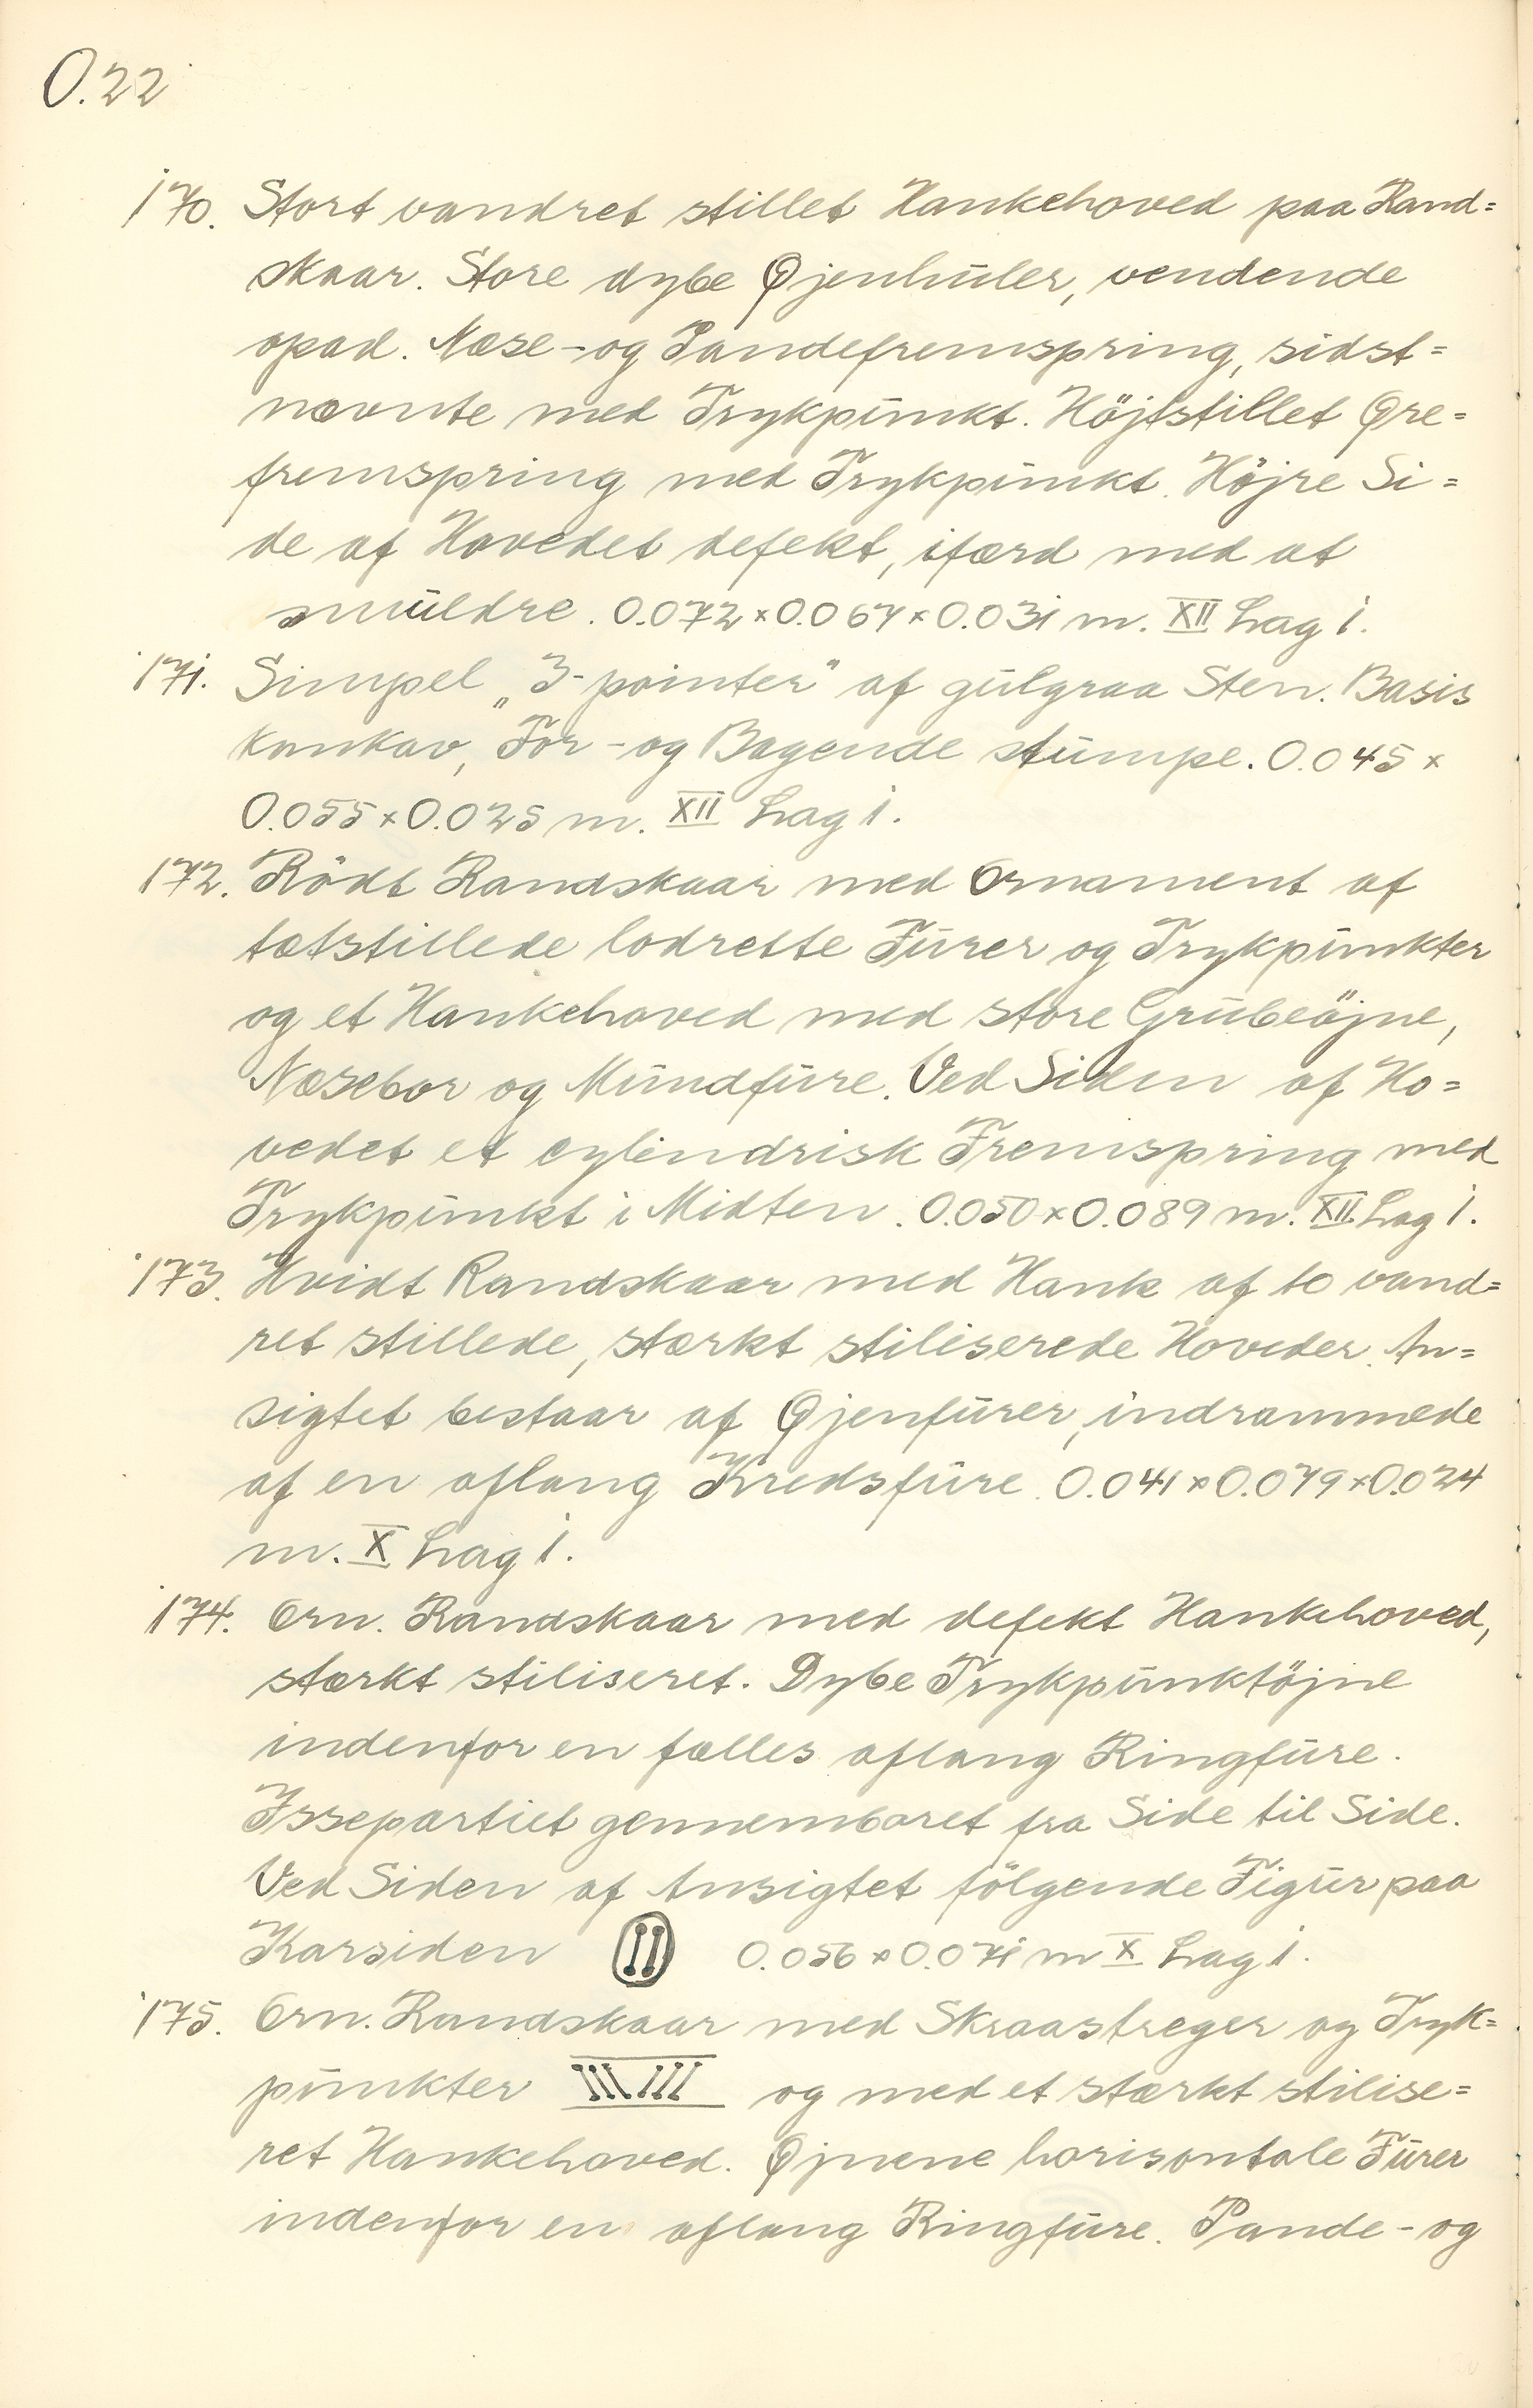 O.22
170. Stort vandret stillet Hankehoved paa Rand=
skaar. Store dybe Øjenhuler, vendende
opad. Næse- og Pandefremspring, sidst=
nævnte med Trykpunkt. Höjtstillet Øre=
fremspring med Trykpunkt. Höjre Si=
de af Hovedet defekt, ifærd med at
smuldre. 0.072×0.067×0.031 m. XII Lag 1.
171. Simpel „3-pointer" af gulgraa Sten. Basis
konkav, For- og Bagende stumpe. 0.045×
0.055×0.025 m. XII Lag 1.
172. Rödt Randskaar med Ornament af
tætstillede lodrette Furer og Trykpunkter
og et Hankehoved med store Grubeöjne,
Næsebor og Mundfure. Ved Siden af Ho=
vedet et cylindrisk Fremspring med
Trykpunkt i Midten. 0.050×0.089 m. XII Lag 1.
173. Hvidt Randskaar med Hank af to vand=
ret stillede, stærkt stiliserede Hoveder. An=
sigtet bestaar af Øjenfurer, indrammede
af en aflang Kredsfure. 0.041×0.079×0.024
m. X Lag 1.
174. Orn. Randskaar med defekt Hankehoved,
stærkt stiliseret. Dybe Trykpunktöjne
indenfor en fælles aflang Ringfure.
Issepartiet gennemboret fra Side til Side.
Ved Siden af Ansigtet fölgende Figur paa
Karsiden 0.056×0.071 m X Lag 1.
175. Orn. Randskaar med Skraastreger og Tryk=
punkter og med et stærkt stilise=
ret Hankehoved. Øjnene horisontale Furer
indenfor en aflang Ringfure. Pande- og